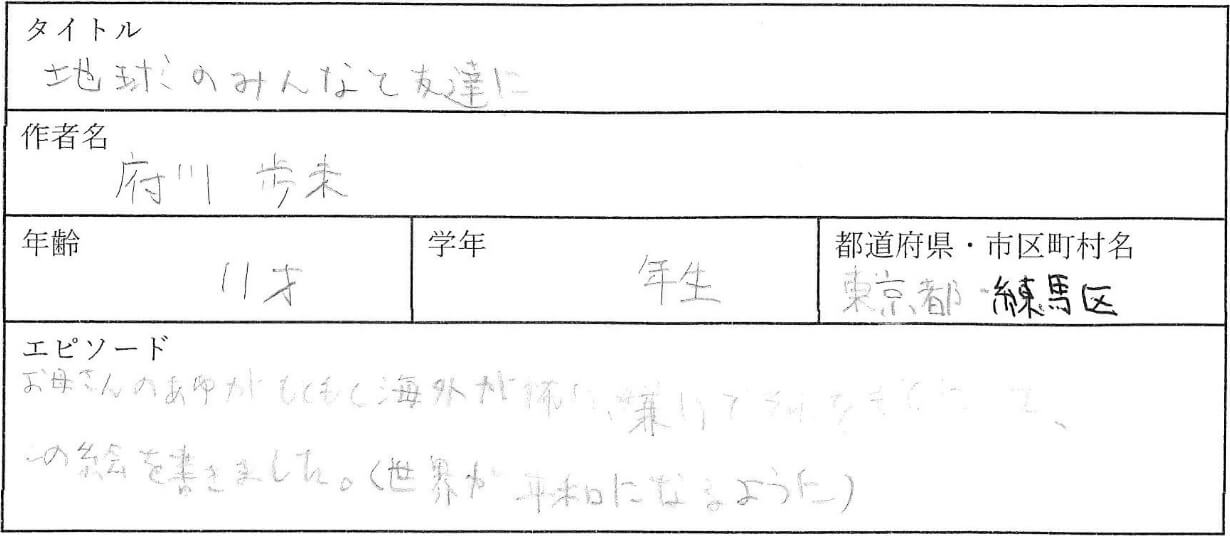 タイトル
地球のみんなと友達に
作者名
府川 歩未
年齢
11才
学年
年生
都道府県・市区町村名
東京都 練馬区
エピソード
お母さんの 海外が 嫌い
の絵を書きました。(世界が平和になるように)